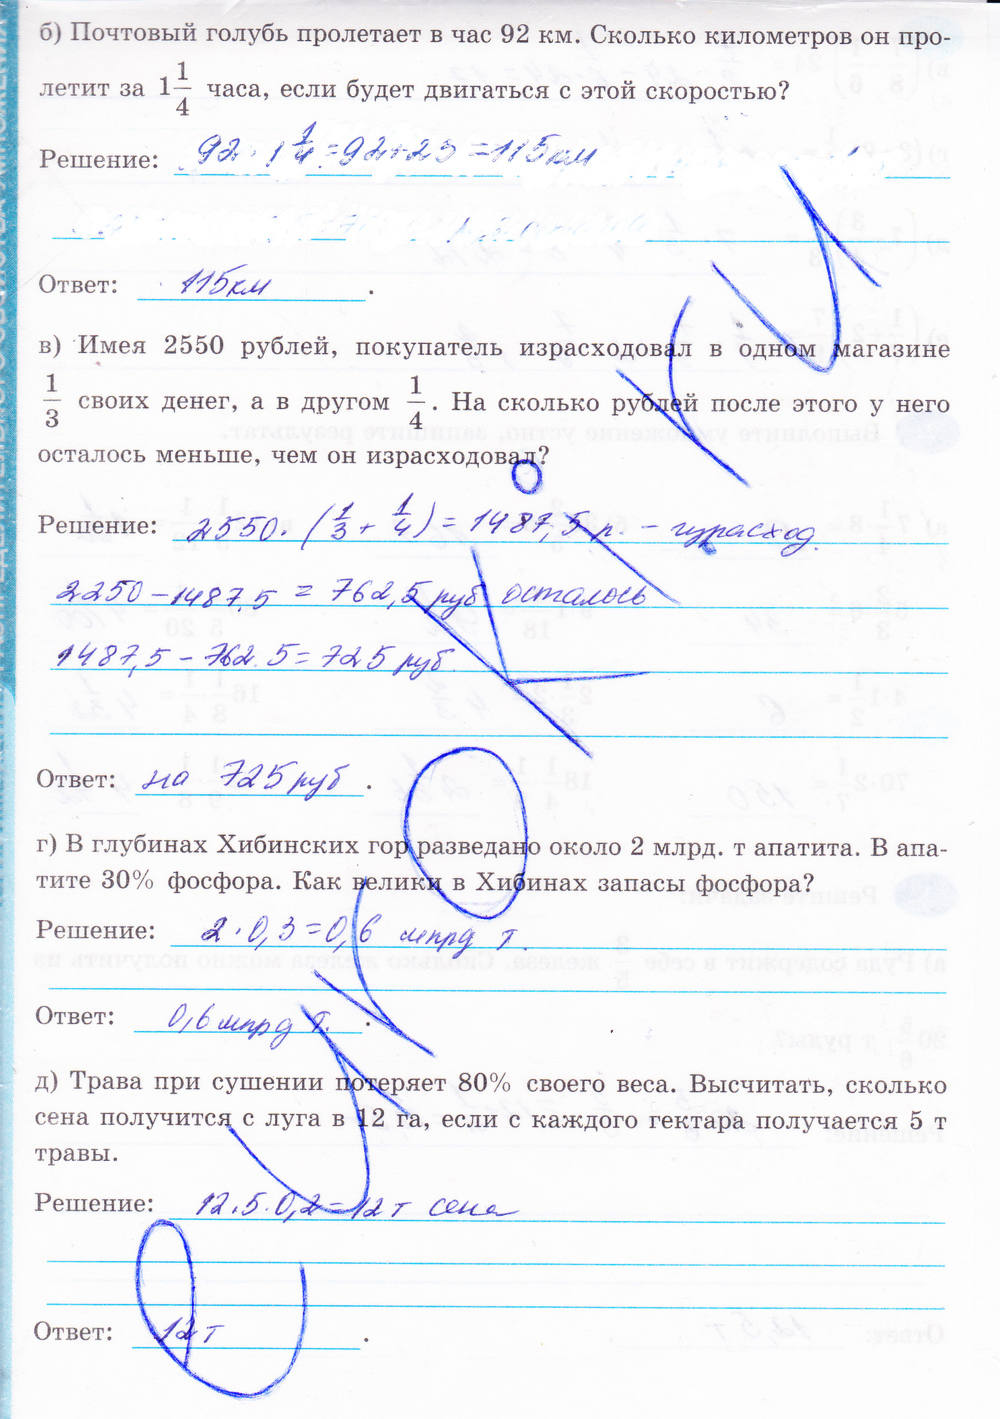 б) Почтовый голубь пролетает в час 92 км. Сколько километров он про-
летит за 1 1/4 часа, если будет двигаться с этой скоростью?
Решение: 92 · 1 1/4 = 92 + 23 = 115 км
Ответ: 115 км .
в) Имея 2550 рублей, покупатель израсходовал в одном магазине
1/3 своих денег, а в другом 1/4. На сколько рублей после этого у него
осталось меньше, чем он израсходовал?
Решение: 2550 · (1/3 + 1/4) = 1487,5 р. – израсход.
2250 – 1487,5 = 762,5 руб осталось
1487,5 – 762.5 = 725 руб.
Ответ: на 725 руб .
г) В глубинах Хибинских гор разведано около 2 млрд. т апатита. В апа-
тите 30% фосфора. Как велики в Хибинах запасы фосфора?
Решение: 2 · 0,3 = 0,6 млрд т.
Ответ: 0,6 млрд т. .
д) Трава при сушении потеряет 80% своего веса. Высчитать, сколько
сена получится с луга в 12 га, если с каждого гектара получается 5 т
травы.
Решение: 12 · 5 · 0,2 = 12 т сена
Ответ: 12 т .